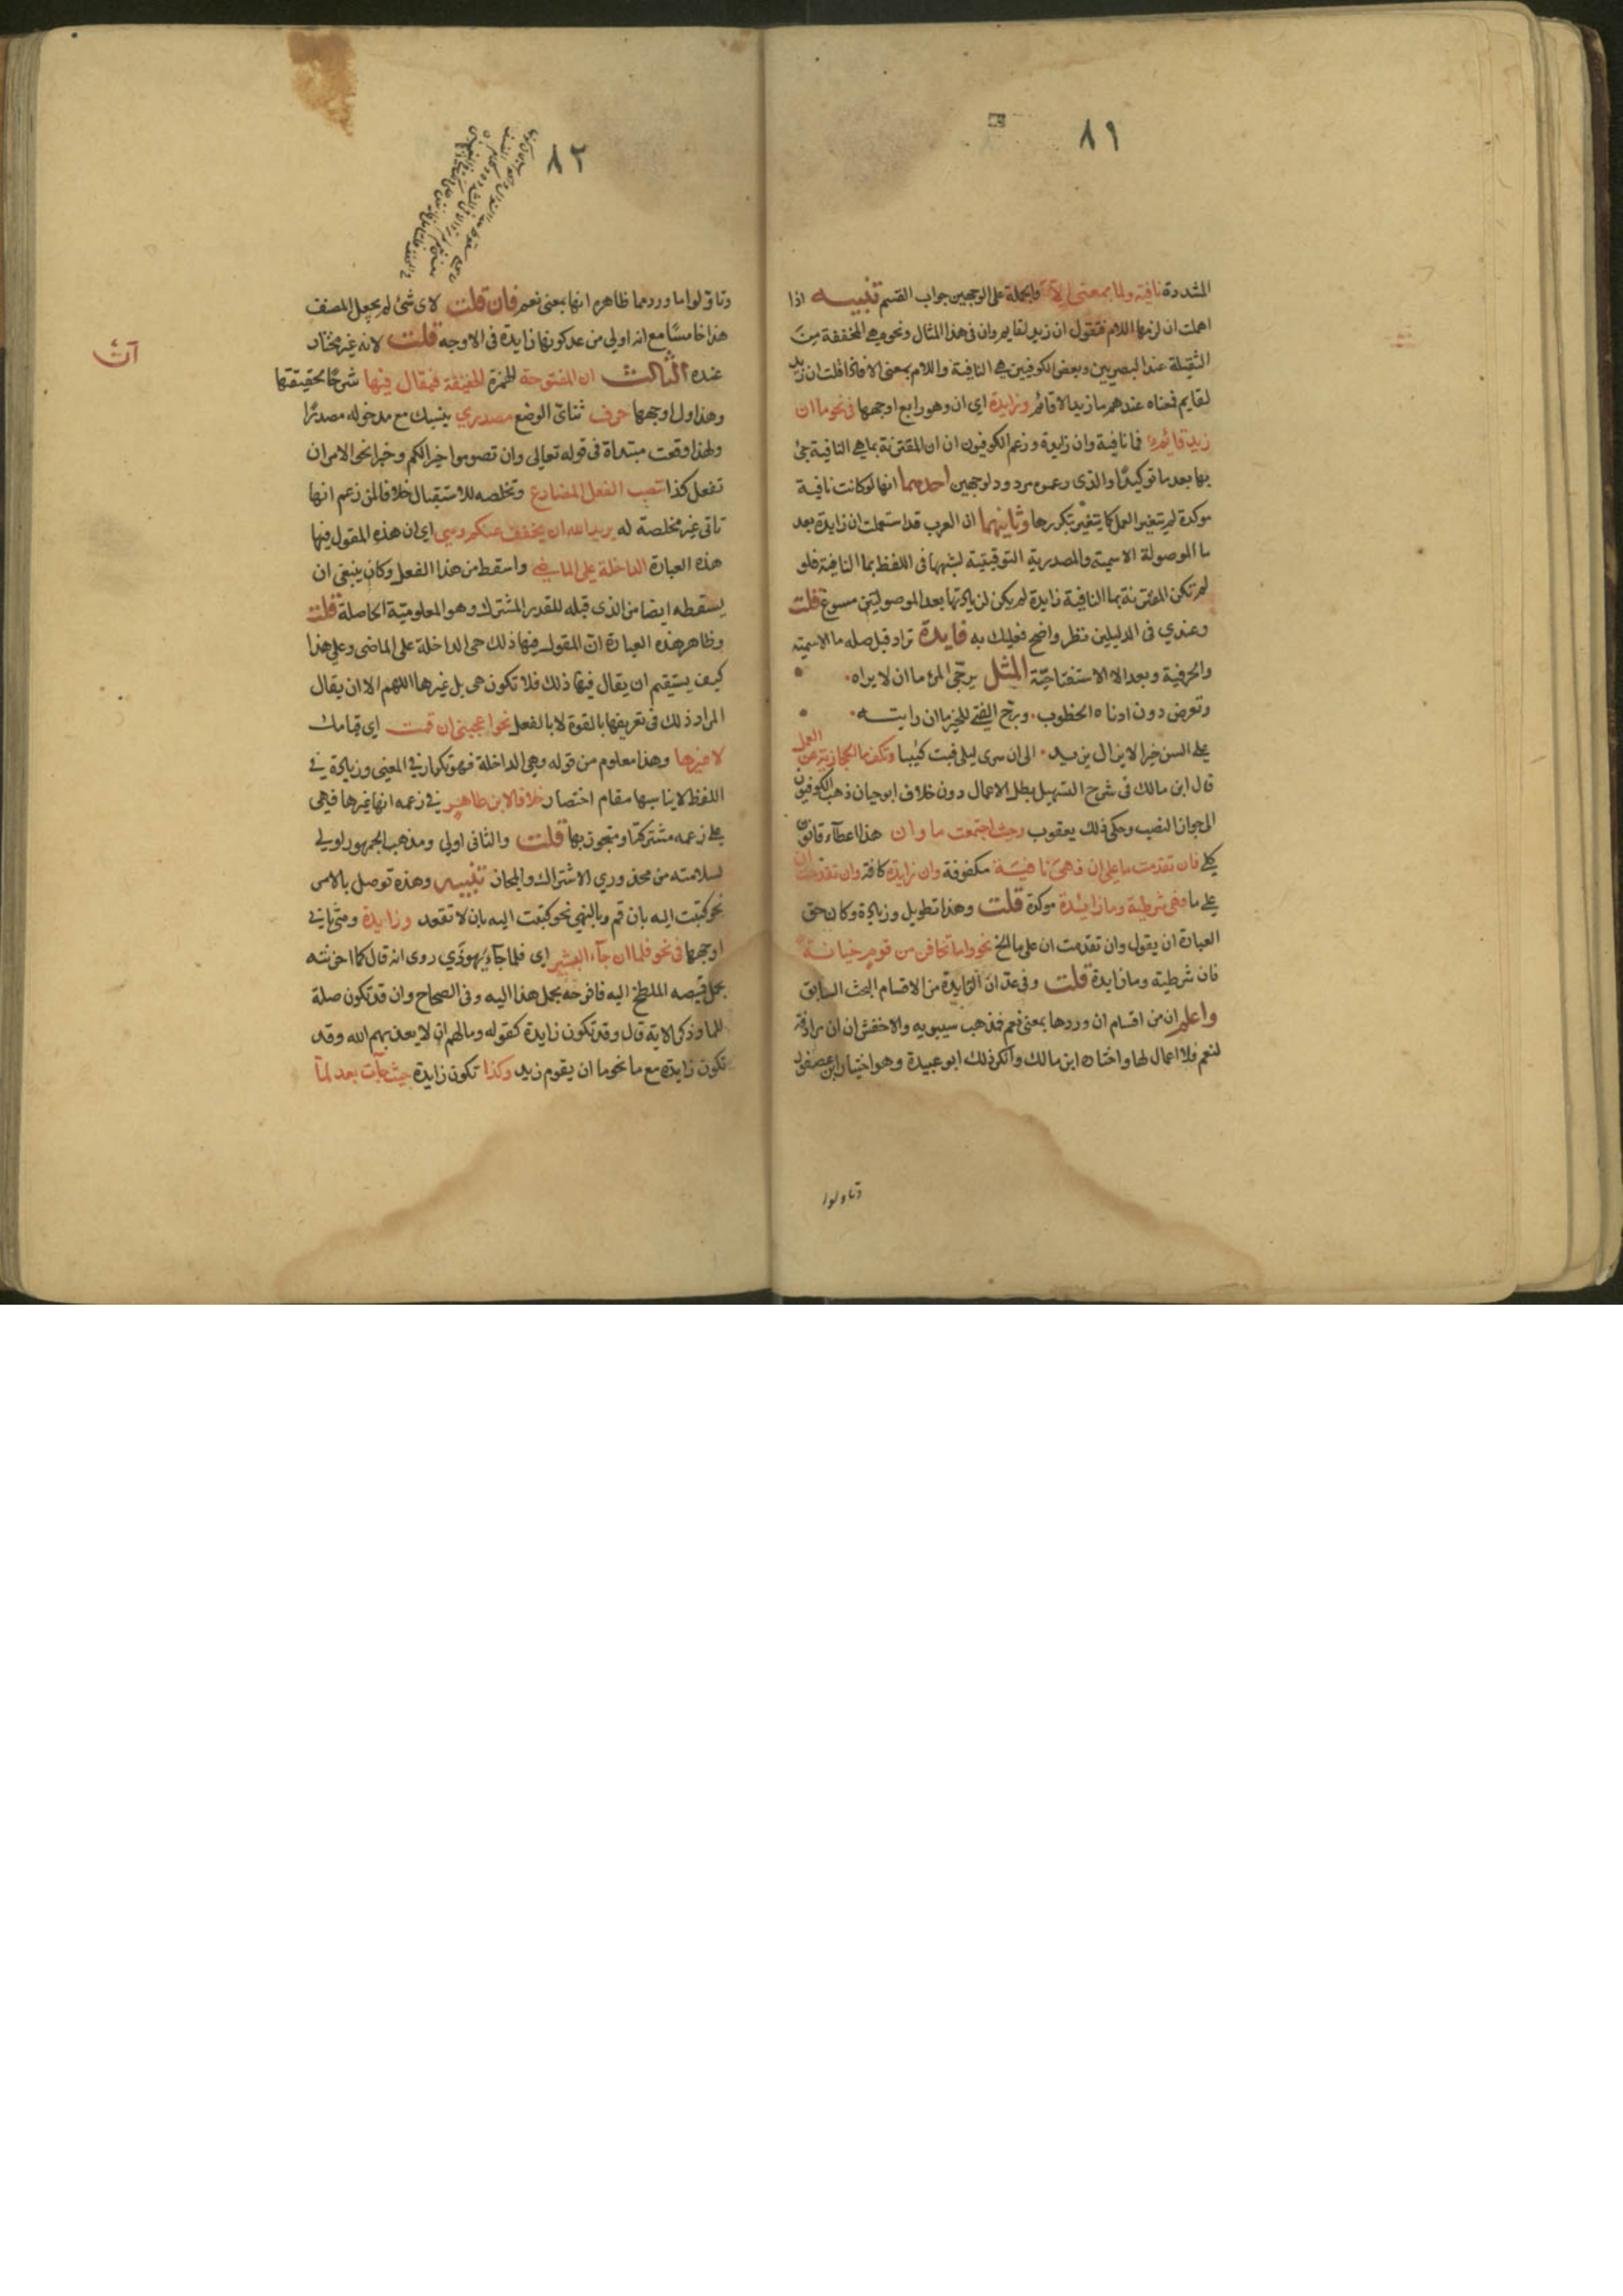 ٨١
المشددة نافية ولما بمعنى الا والجملة على الوجهين جواب القسم تنبيه اذا
اهملت ان لزمها اللام فتقول ان زيد لقايم وان فى هذا المثال ونحوه هى المخففة من
الثقيلة عند البصريين وبعض الكوفيين هى النافية واللام بمعنى الا فاذا قلت ان زيد
لقايم فمعناه عندهم ما زيد الا قائم وزايدة اى ان وهو رابع اوجهها فى نحو ما ان
زيد قائم فما نافية وان زايدة وزعم الكوفيون ان ان المقترنة بما هى النافية جئ
بها بعد ما توكيدًا والذى زعموه مردود لوجهين احدهما انها لو كانت نافية
موكدة لم يتغير العمل كما يتغير بتكررها وثانيهما ان العرب قد استعملت ان زايدة بعد
ما الموصولة الاسمية والمصدرية التوقيتية لشبهها فى اللفظ بما النافية فلو
لم تكن المقترنة بما النافية زايدة لم يكن لزيادتها بعد الموصوليتين مسوغ قلت
وعندي فى الدليلين نظر واضح فعليك به فايدة تزاد قبل صله ما الاسمية
والحرفية وبعد الا الاستفتاحية المثل يرجّى المرء ما ان لا يراه
وتعرض دون ادناه الخطوب وبرج الفتى للخير ما ان رايته
على السن خيرا لا يزال يزيد الى ان سرى ليلى فبت كئيبا وتكف ما الحجازية عن العمل
قال ابن مالك فى شرح التسهيل بطل الاعمال دون خلاف ابو حيان ذهب الكوفيون
الى جواز النصب وحكى ذلك يعقوب وحيث اجتمعت ما وان هذا اعطاء قانون
كلى فان تقدمت ما على ان فهى نافية مكفوفة وان زايدة كافة وان تقدمت ان
على ما فهى شرطية وما زائدة موكدة قلت وهذا تطويل وزيادة وكان حق
العبارة ان يقول وان تقدمت ان على ما الخ نحو واما تخافن من قوم خيانة
فان شرطية وما زايدة قلت وفى عد ان الزايدة من الاقسام البحث السابق
واعلم ان من اقسام ان ورودها بمعنى نعم فذهب سيبويه والاخفش ان ان مرادفة
لنعم فلا اعمال لها واختاره ابن مالك وانكر ذلك ابو عبيدة وهو اختيار ابن عصفور
وتاولوا
٨٢
وتاولوا ما ورد مما ظاهره انها بمعنى نعم فان قلت لاى شئ لم يجعل المصنف
هذا خامسًا مع انه اولى من عد كونها زايدة فى الاوجه قلت لانه غير مختار
عنده الثالث ان المفتوحة الهمزة الخفيفة فيقال فيها شرحًا لحقيقتها
وهذا اول اوجهها حرف ثنائى الوضع مصدري ينسبك مع مدخوله مصدرًا
ولهذا وقعت مبتداة فى قوله تعالى وان تصوموا خير لكم وخبرا نحو الامر ان
تفعل كذا تنصب الفعل المضارع وتخلصه للاستقبال خلافا لمن زعم انها
تاتى غير مخلصة له يريد الله ان يخفف عنكم وهى اى ان هذه المقول فيها
هذه العبارة الداخلة على الماضى واسقط من هذا الفعل وكان ينبغى ان
يسقطه ايضا من الذى قبله للقدر المشترك وهو المعلومية الحاصلة قلت
وظاهر هذه العبارة ان المقول فيها ذلك هى الداخلة على الماضى وعلى هذا
كيف يستقيم ان يقال فيها ذلك فلا تكون هى بل غيرها اللهم الا ان يقال
المراد ذلك فى تعريفها بالقوة لا بالفعل نحو اعجبنى ان قمت اى قيامك
لا غيرها وهذا معلوم من قوله وهى الداخلة فهو تكرار فى المعنى وزيادة فى
اللفظ لا يناسبها مقام اختصار خلافا لابن طاهر فى زعمه انها غيرها فهى
على زعمه مشتركة او متجوز بها قلت والثانى اولى ومذهب الجمهور اولى
لسلامته من محذوري الاشتراك والمجاز تنبيه وهذه توصل بالامر
نحو كتبت اليه بان قم وبالنهي نحو كتبت اليه بان لا تقعد وزايدة وهى ثانى
اوجهها فى نحو فلما ان جآء البشير اى فلما جآء يهوذي روى انه قال كما احزنته
بحمل قميصه الملطخ اليه فافرحه بحمل هذا اليه وفى الصحاح وان قد تكون صلة
للما وذكر الاية قال وقد تكون زايدة كقوله وما لهم ان لا يعذبهم الله وقد
تكون زايدة مع ما نحو ما ان يقوم زيد وكذا تكون زايدة حيث جآت بعد لمّا
آن